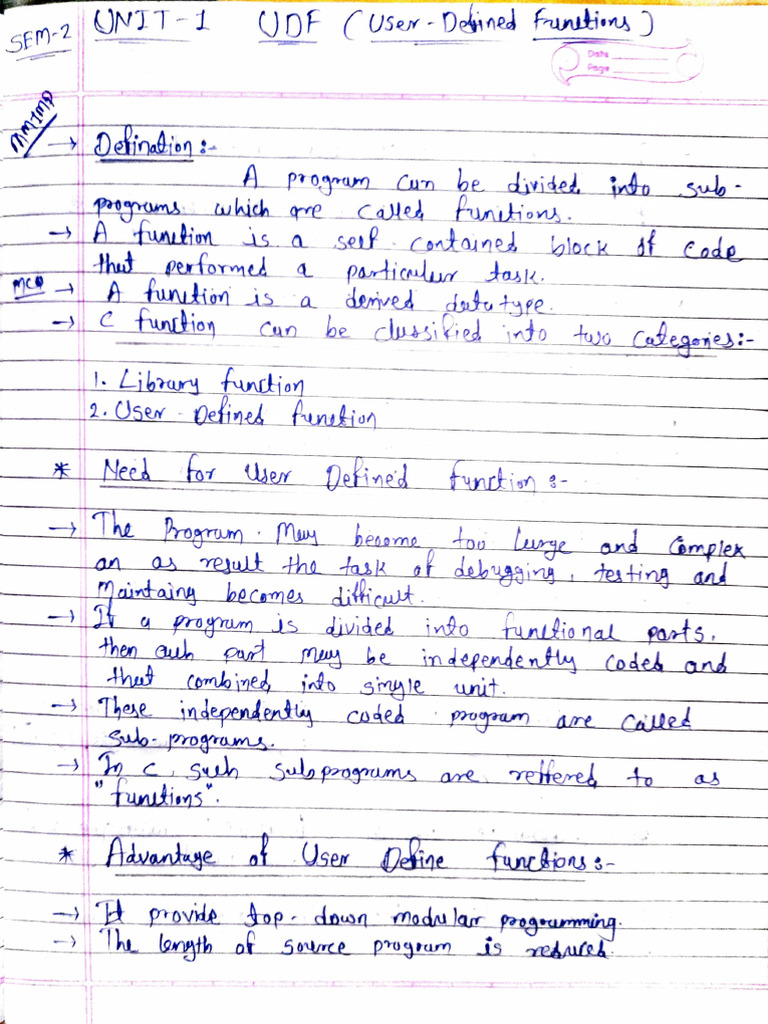 SEM-2 UNIT-1 UDF (User-Defined Functions)
Date
Page
MMIMP
→ Defination:-
A program can be divided into sub-
programs which are called functions.
→ A function is a self contained block of code
that performed a particular task.
MCQ → A function is a derived data type.
→ C function can be classified into two categories:-
1. Library function
2. User-Defined function
* Need for User Defined function:-
→ The Program May become too large and complex
an as result the task of debugging, testing and
Maintaing becomes difficult.
→ If a program is divided into functional parts,
then each part may be independently coded and
that combined into single unit.
→ These independently coded program are called
sub-programs.
→ In C, such subprograms are reffered to as
"functions".
* Advantage of User Define functions:-
→ It provide top-down modular programming.
→ The length of source program is reduced.